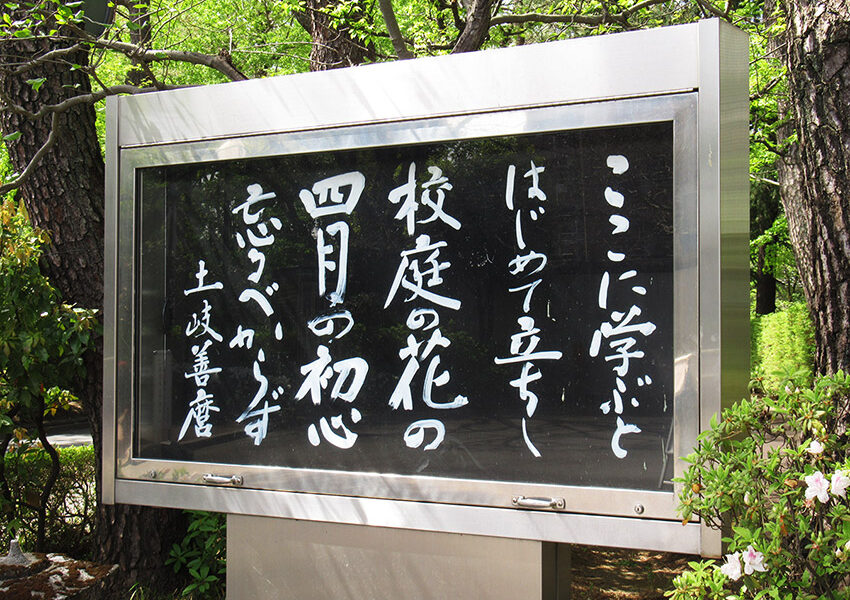 ここに学ぶと
はじめて立ちし
校庭の花の
四月の初心
忘るべからず
土岐善麿